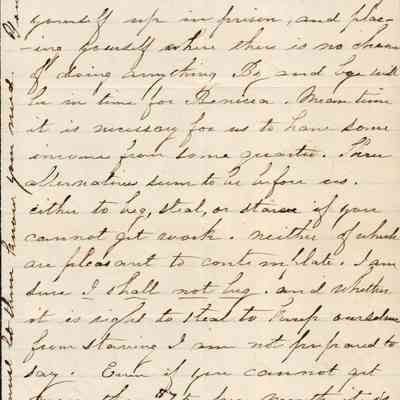 yourself up in prison, and plac-
-ing yourself where there is no chance
of doing anything By and bye will
be in time for Benicia. Meantime
it is necessary for us to have some
income from some quarter. Three
alternatives seem to be before us.
either to beg, steal, or starve if you
cannot get work. neither of which
are pleasant to contemplate. I am
sure I shall not beg. and whether
it is right to steal to keep ourselves
from starving I am not prepared to
say. Even if you cannot get
know you need.